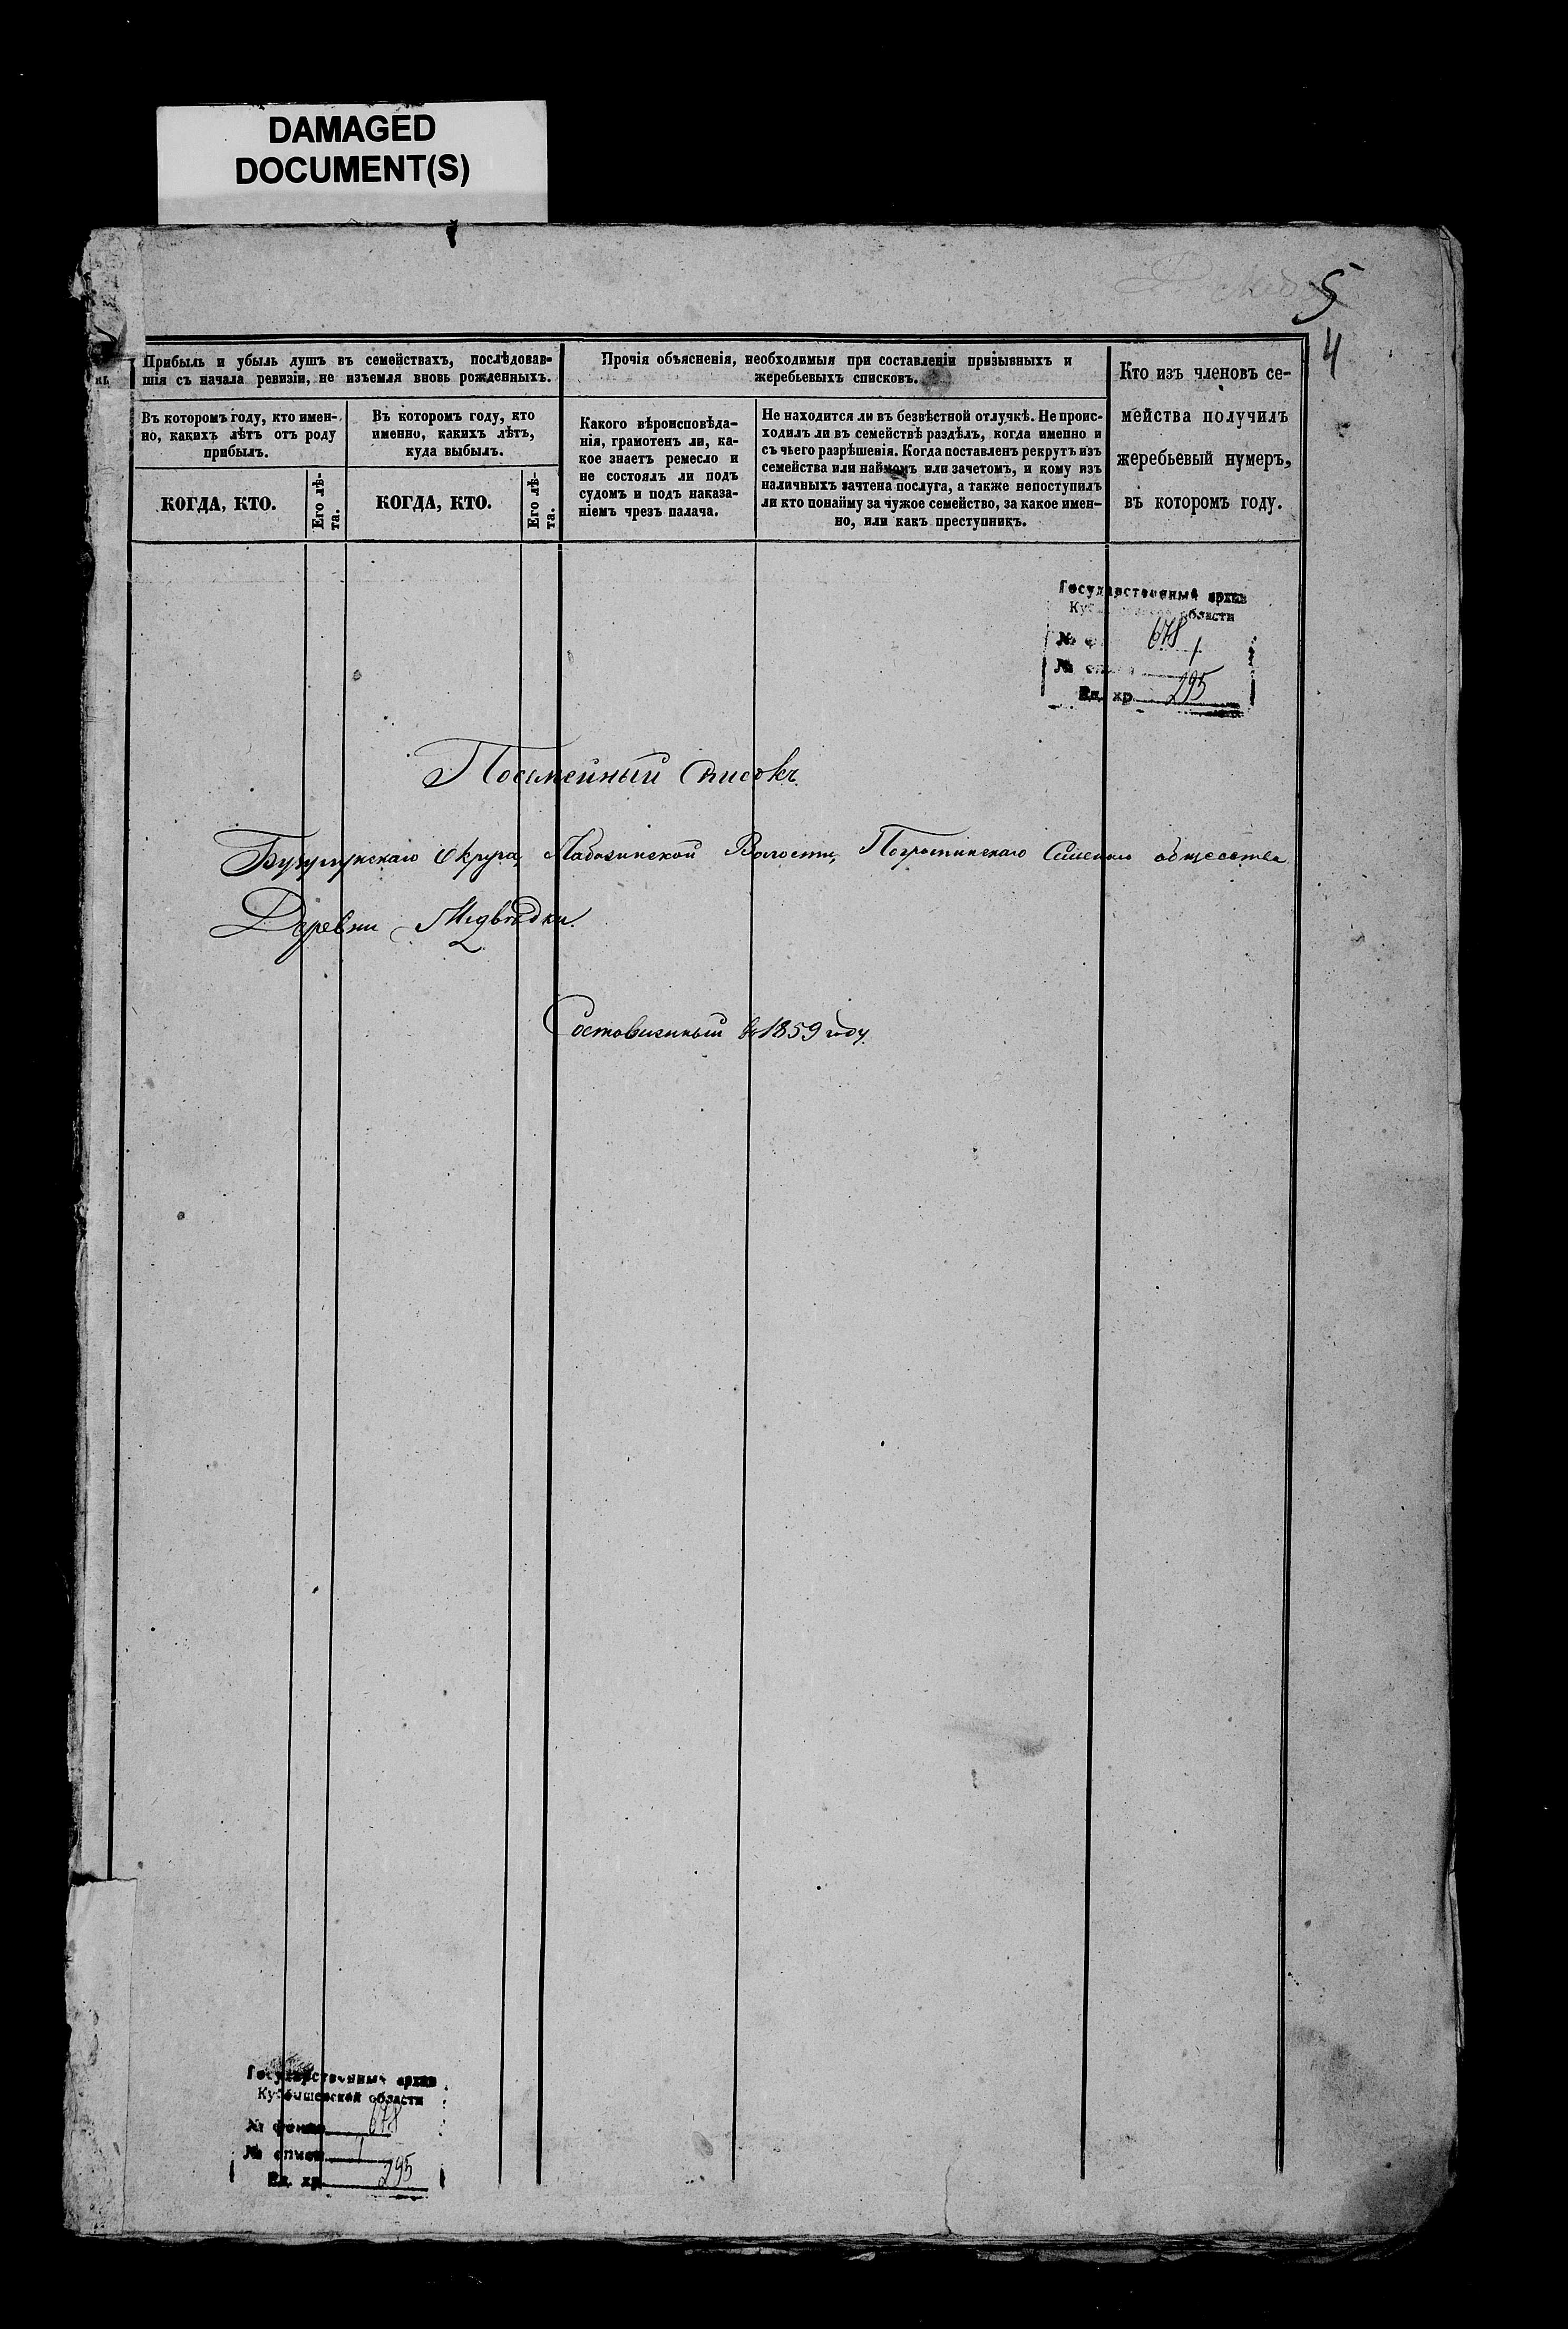 DAMAGED
DOCUMENT(S)
5
4
Прибыль и убыль душъ въ семействахъ, послѣдовав-
шія съ начала ревизіи, не изъемля вновь рожденныхъ.
Въ которомъ году, кто имен-
но, какихъ лѣтъ отъ роду
прибылъ.
КОГДА, КТО.
Его лѣ-
та.
Въ которомъ году, кто
именно, какихъ лѣтъ,
куда выбылъ.
КОГДА, КТО.
Его лѣ-
та.
Прочія объясненія, необходимыя при составленіи призывныхъ и
жеребьевыхъ списковъ.
Какого вѣроисповѣда-
нія, грамотенъ ли, ка-
кое знаетъ ремесло и
не состоялъ ли подъ
судомъ и подъ наказа-
ніемъ чрезъ палача.
Не находится ли въ безвѣстной отлучкѣ. Не проис-
ходилъ ли въ семействѣ раздѣлъ, когда именно и
съ чьего разрѣшенія. Когда поставленъ рекрутъ изъ
семейства или наймомъ или зачетомъ, и кому изъ
наличныхъ зачтена послуга, а также непоступилъ
ли кто понайму за чужое семейство, за какое имен-
но, или какъ преступникъ.
Кто изъ членовъ се-
мейства получилъ
жеребьевый нумеръ,
въ которомъ году.
Государственный архив
области
№ 678
№ 1
Ед. хр. 295
Посемейный Списокъ
Бузулукскаго Округа, Лабазинской Волости, Погроминскаго Сельскаго общества
Деревни Медвѣдки.
Составленный въ 1859 году.
Государственный архив
Куйбышевской области
№ фонда 678
№ описи 1
Ед. хр. 295